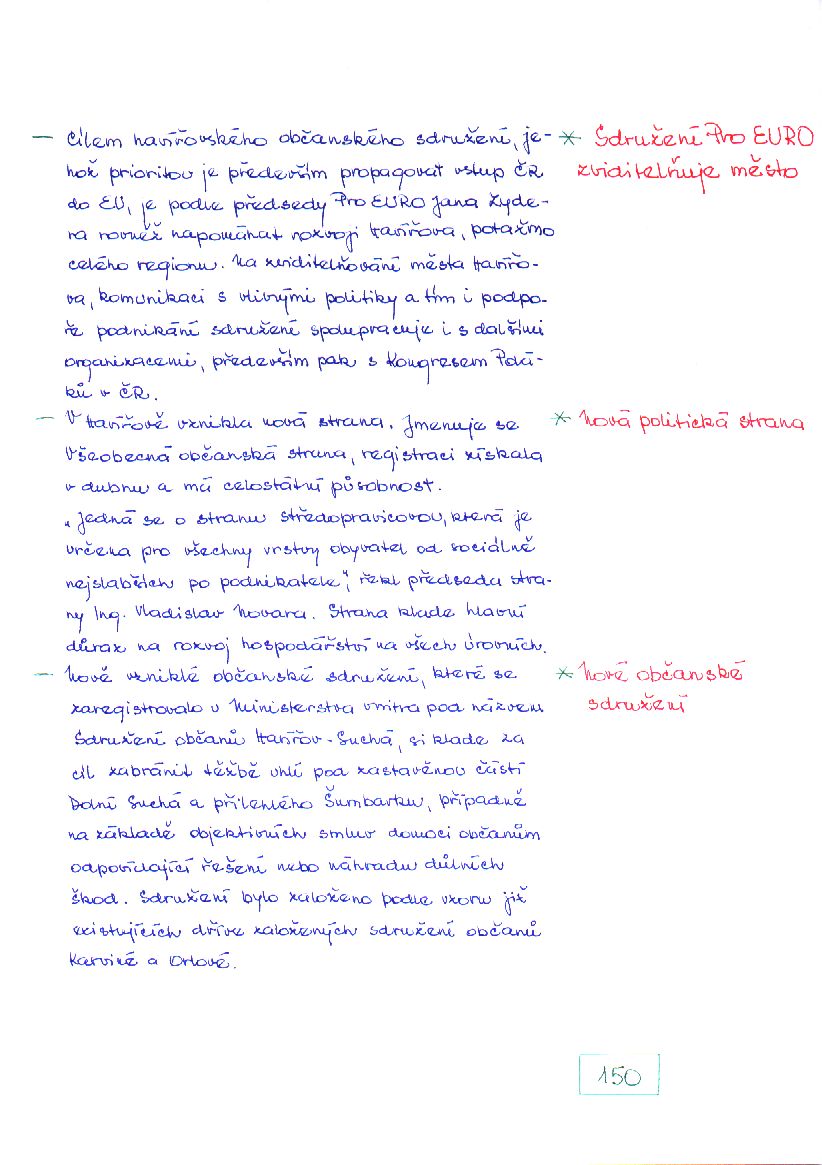 — Cílem havířovského občanského sdružení, je-
hož prioritou je především propagovat vstup ČR
do EU, je podle předsedy Pro EURO Jana Zyde-
ra rovněž napomáhat rozvoji Havířova, potažmo
celého regionu. Na zviditelňování města Havířo-
va, komunikaci s vlivnými politiky a tím i podpo-
ře podnikání sdružení spolupracuje i s dalšími
organizacemi, především pak s Kongresem Polá-
ků v ČR.
* Sdružení Pro EURO
zviditelňuje město
— V Havířově vznikla nová strana. Jmenuje se
Všeobecná občanská strana, registraci získala
v dubnu a má celostátní působnost.
„Jedná se o stranu středopravicovou, která je
určena pro všechny vrstvy obyvatel od sociálně
nejslabších po podnikatele“, řekl předseda stra-
ny Ing. Vladislav Novara. Strana klade hlavní
důraz na rozvoj hospodářství na všech úrovních.
* Nová politická strana
— Nově vzniklé občanské sdružení, které se
zaregistrovalo u Ministerstva vnitra pod názvem
Sdružení občanů Havířov - Suchá, si klade za
cíl zabránit těžbě uhlí pod zastavěnou částí
Dolní Suchá a přilehlého Šumbarku, případně
na základě objektivních smluv domoci občanům
odpovídající řešení nebo náhradu důlních
škod. Sdružení bylo založeno podle vzoru již
existujících dříve založených sdružení občanů
Karviné a Orlové.
* Nové občanské
sdružení
150